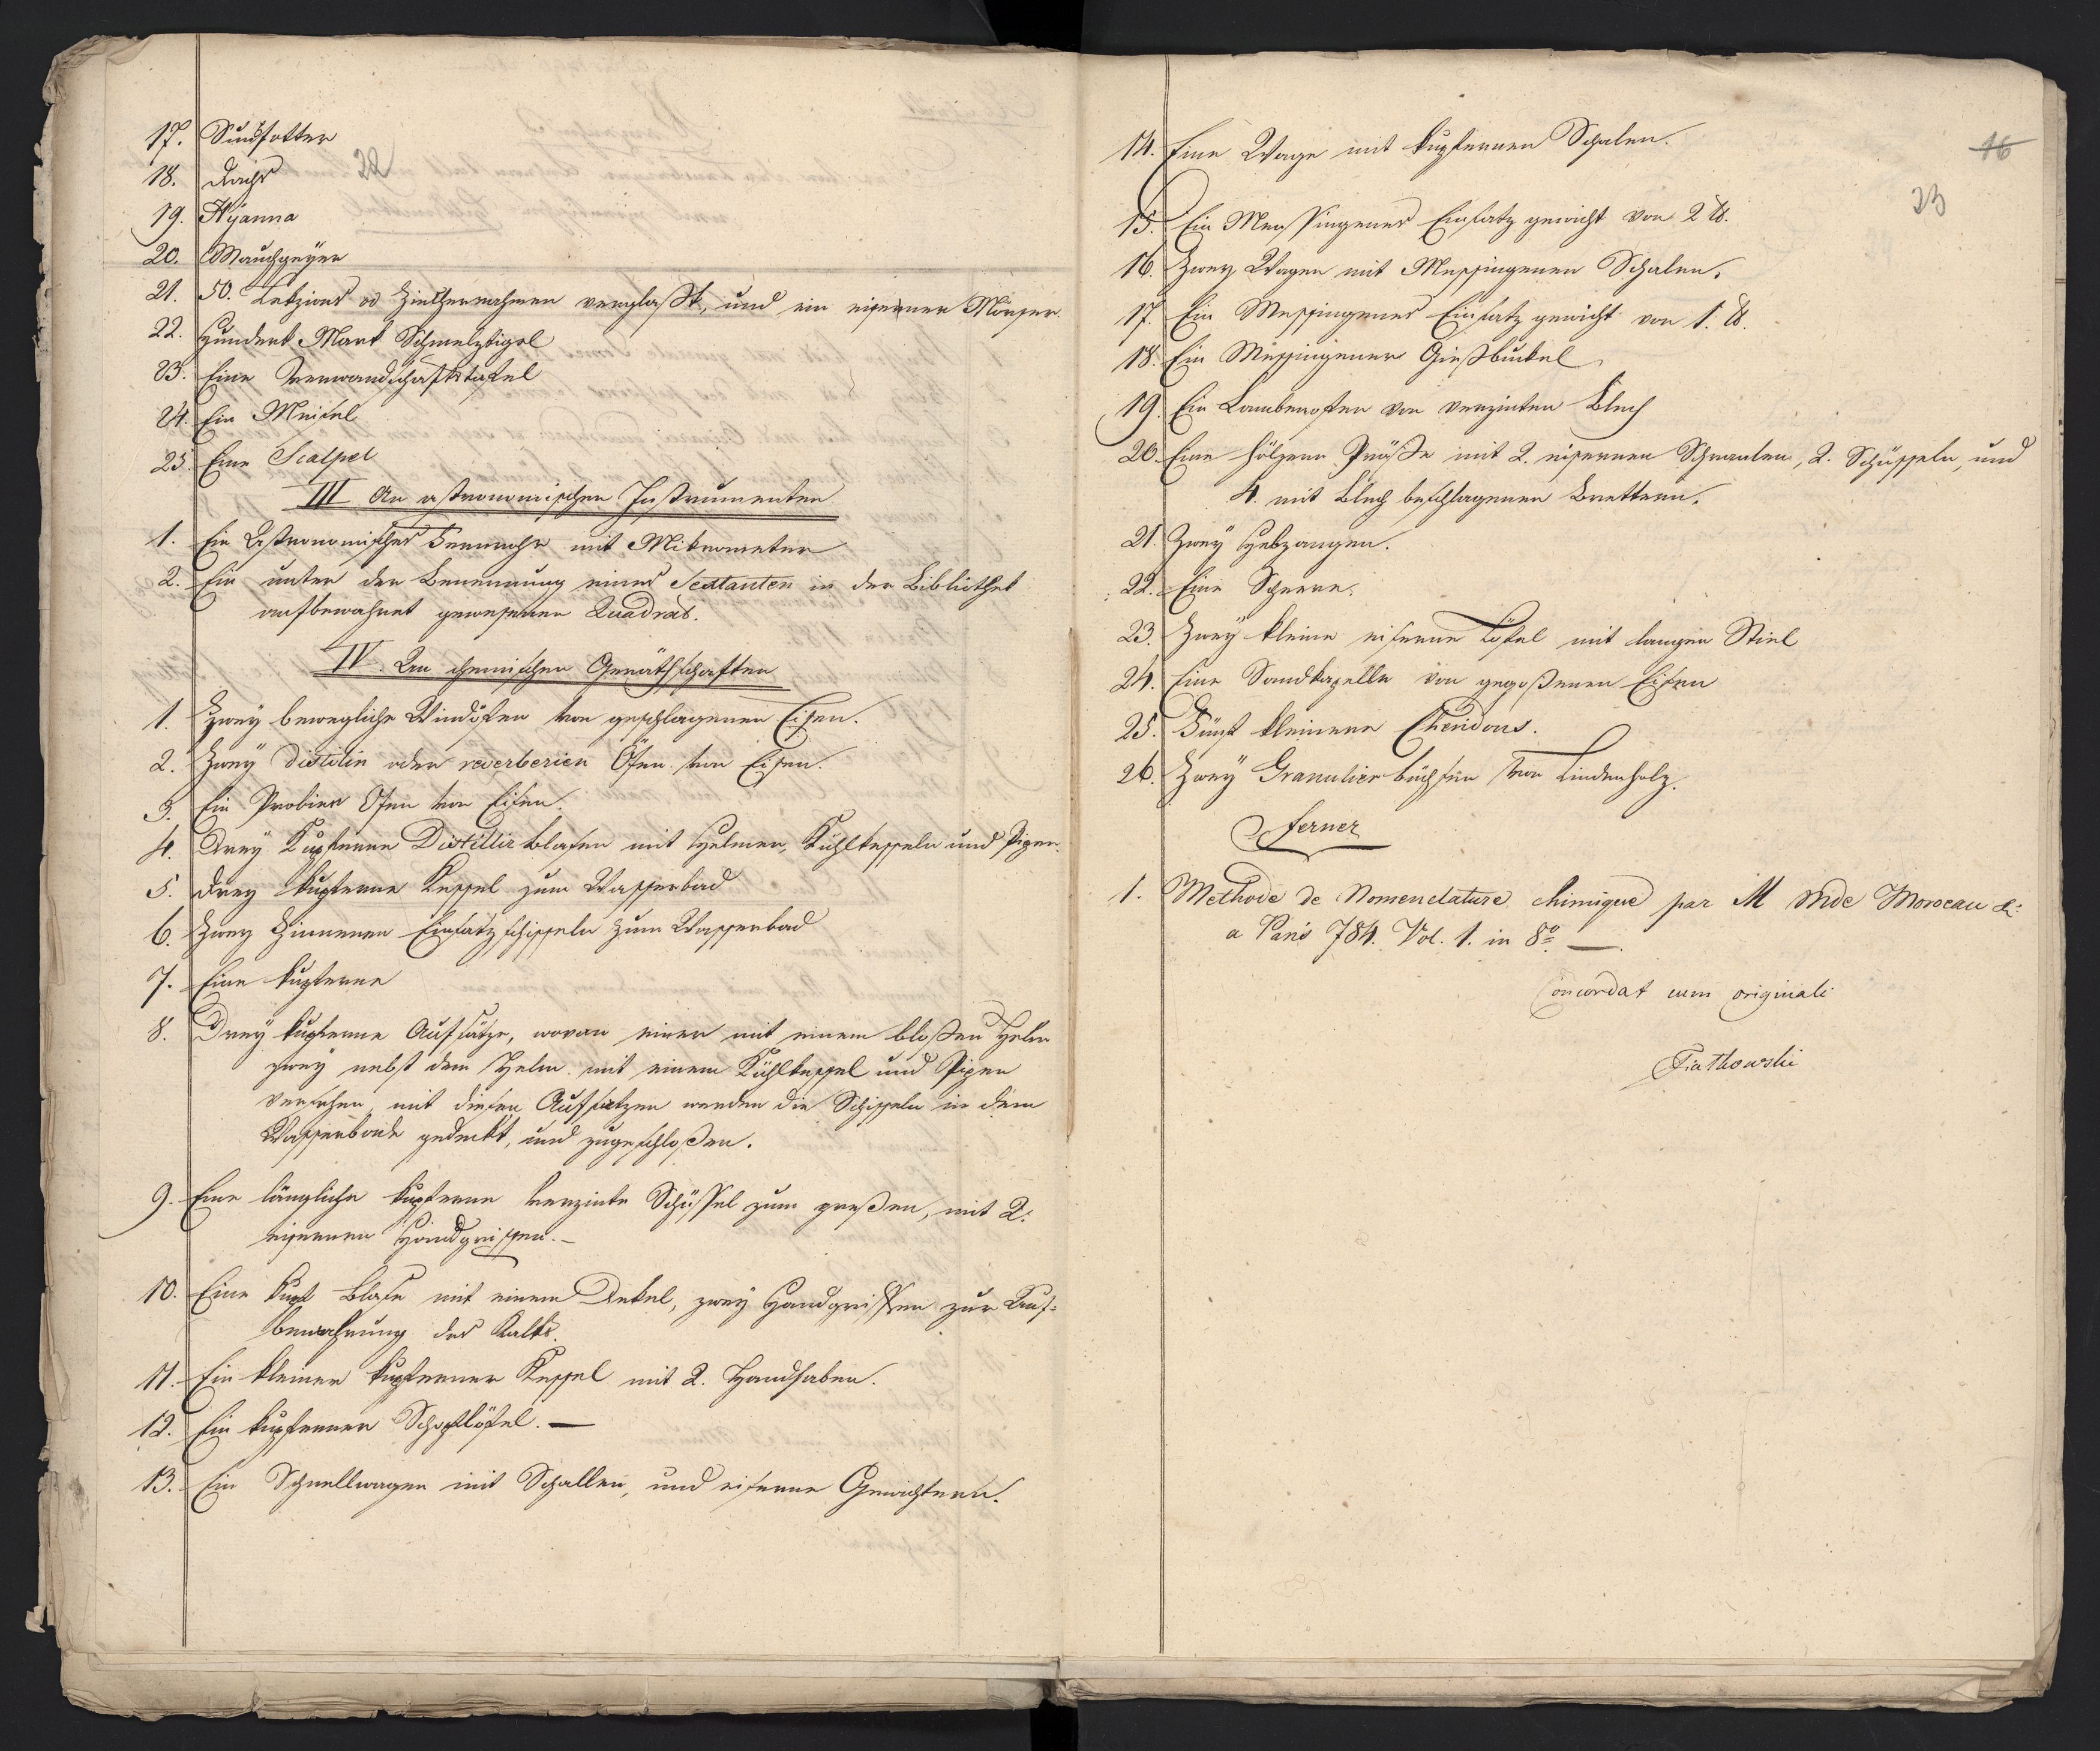 22
17. Sündfotter
18. Dachs
19. Hyänna
20. Mauchgeyer
21. 50. Lekzions od Zieshernahmen verglaßt, und ein eiserner Mörser.
22. Hundert Mark Schmelztigel
23. Eine Verwandschaftstafel
24. Ein Meisel
25. Eine Scalpel
III An astronomischen Instrumenten
1. Ein Astronomisches Fernrohr mit Mikrometer
2. Ein unter der Benennung eines Sextanten in der Bibliothek
aufbewahret gewesener Quadrat.
IV. An chemischen Geräthschaften
1. Zwey bewegliche Windöfen von geschlagenen Eisen.
2. Zwey Distilin oder reverberien Öfen von Eisen.
3. Ein Probier Ofen von Eisen.
4. Drey Kupferne Distillir Blasen mit Helmen, Kühlkesseln und Pipen.
5. Drey kupferne Kessel zum Wasserbad
6. Zwey Zinnenen Einsatzschisseln zum Wasserbad
7. Eine kupferne
8. Drey kupferne Aufsätze, wovon einer mit einem bloßen Helm
zwey nebst dem Helm mit einem Kühlkessel und Pipen
versehen, mit diesen Aufsatzen werden die Schisseln in dem
Wasserbade gedeckt, und zugeschloßen.
9. Eine längliche kupferne verzinte Schüssel zum preßen, mit 2.
eisernen Handgriffen.–
10. Eine kupf Blase mit einem Dekel, zwey Handgriffen zur Auf:
bewahrung des Kalks.
11. Ein kleiner kupferner Kessel mit 2. Handhaben.
12. Ein kupferner Schopflöfel. —
13. Ein Schnellwagen mit Schallen, und eiserne Gewichtern.
16
23
14. Eine Wage mit kupfernen Schalen.
15. Ein Messingenes Einsatz gewicht von 2 ℔.
16. Zwey Wagen mit Messingenen Schalen.
17. Ein Messingenes Einsatz gewicht von 1. ℔.
18. Ein Messingener Gießbuckel
19. Ein Lambenofen von verzinten Blech
20. Eine hölzerne Präße mit 2. eisernen Schrauben, 2. Schüsseln, und
4. mit Blech beschlagenen Brettern.
21. Zwey Hebzangen.
22. Eine Scheere.
23. Zwey kleine eiserne Löfel mit langen Stiel
24. Eine Sandkapelle von gegoßenen Eisen
25. Fünf kleinere Cheridons.
26. Zwey Granulier büchsen von Lindenholz.
ferner
1. Methode de Nomenclature chimique par M Mde Moroeau &:
a Paris 784. Vol. 1. in 8º —.
Concordat cum originali
Fiatkowski